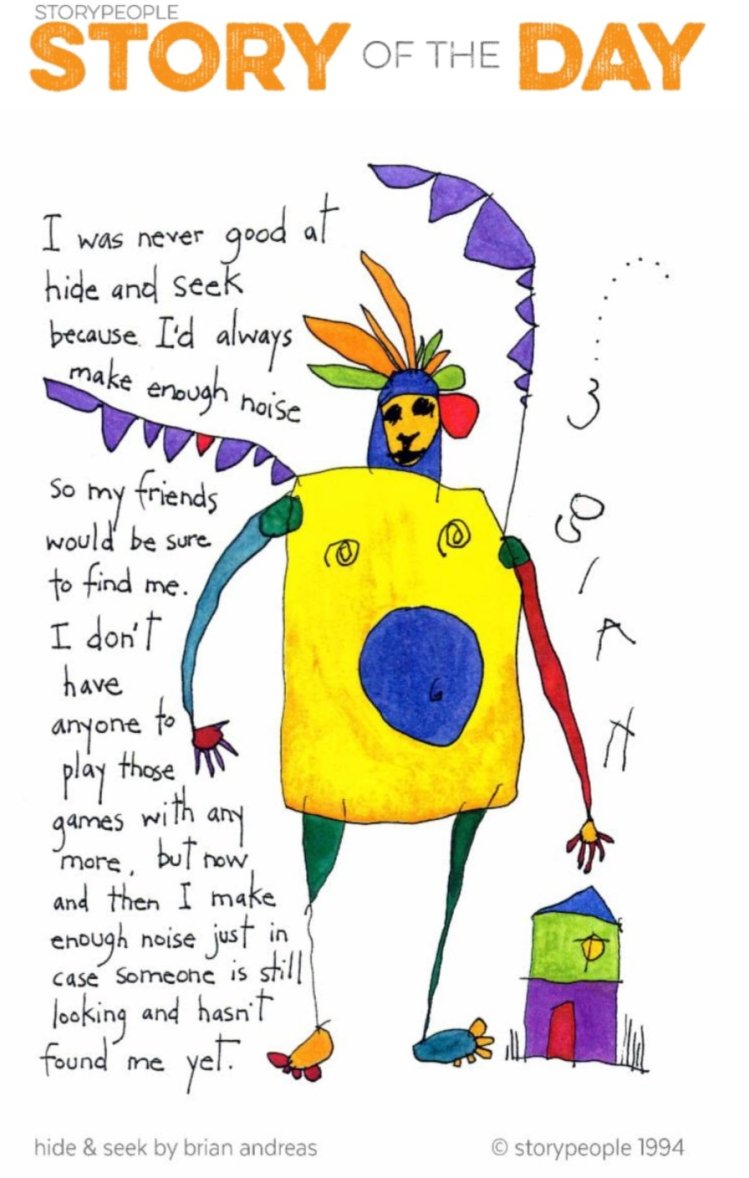 STORYPEOPLE
STORY OF THE DAY
I was never good at
hide and seek
because I'd always
make enough noise
so my friends
would be sure
to find me.
I don't
have
anyone to
play those
games with any
more, but now
and then I make
enough noise just in
case someone is still
looking and hasn't
found me yet.
hide & seek by brian andreas
© storypeople 1994